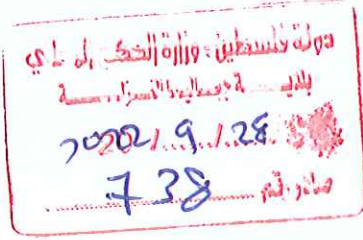 دولة فلسطين - وزارة الحكم المحلي
بلدية جباليا النزلة
2022 / 9 / 28
صادر رقم 738